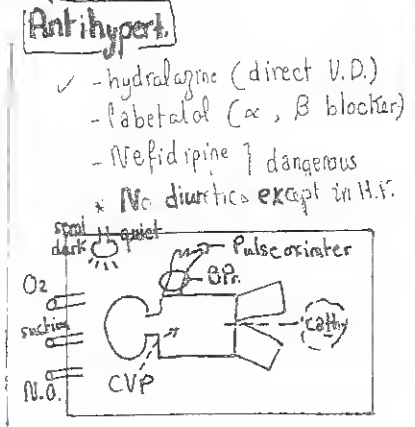 Antihypert.
✓ - hydralazine (direct V.D.)
- labetalol (α, β blocker)
- Nefidipine } dangerous
* No diuretics except in H.F.
semi dark quiet
Pulse oximeter
B.Pr.
O2
suction
N.O.
CVP
Cath